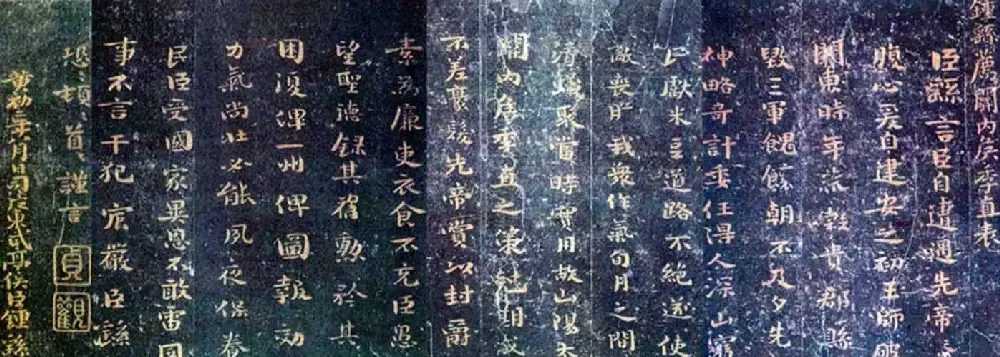 鍾繇薦關内侯季直表
臣繇言臣自遭遇先帝
腹心爰自建安之初王師破
關東時年荒穀貴郡縣
毀三軍餽饟朝不及夕先
神略奇計委任得人深山窮
民獻米豆道路不絕遂使
敵喪膽我衆作氣旬月之間
清蟻聚當時實用故山陽太
關内侯季直之策尅期成
不差豪髮先帝賞以封爵
素為廉吏衣食不充臣愚
望聖德錄其舊勳矜其
困復俾一州俾圖報効
力氣尚壯必能夙夜保養
民臣受國家異恩不敢雷同
事不言干犯宸嚴臣繇
恐頓首謹言
貞觀
黃初二年八月日司徒東武亭侯臣鍾繇